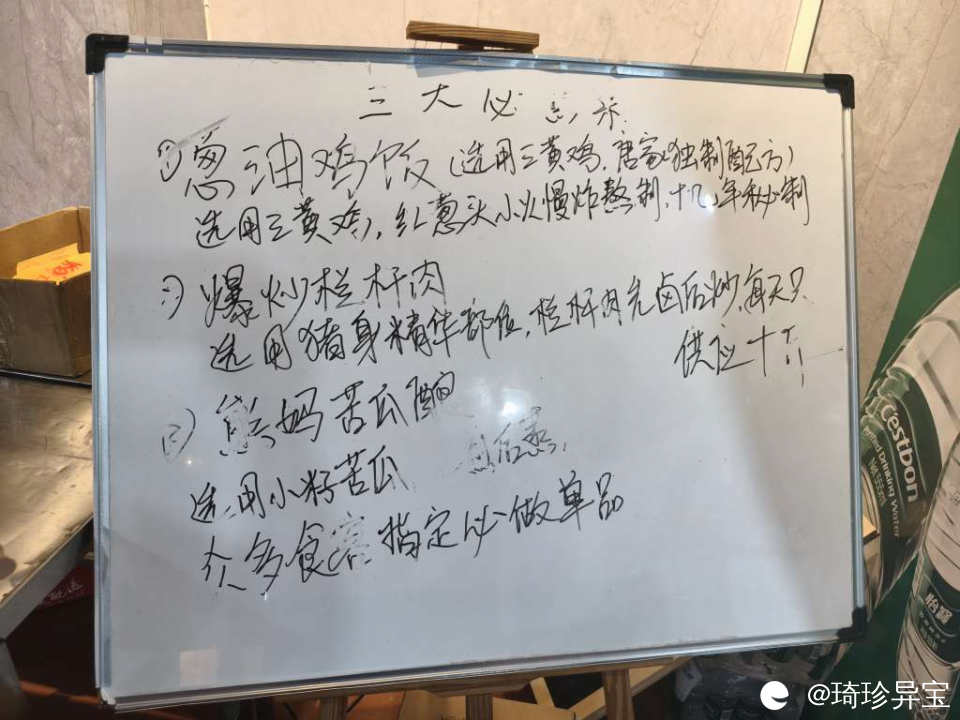 三大必
①葱油鸡饭(选用三黄鸡,唐家独制配方)
选用三黄鸡,红葱头小火慢炸熬制,十几年秘制
②爆炒栏杆肉
选用猪身精华部位,栏杆肉先卤后炒,每天只
供应十
③熊妈苦瓜酿
选用小籽苦瓜
众多食客指定必做单品
C'estbon
Drinking Water
怡宝
@琦珍异宝